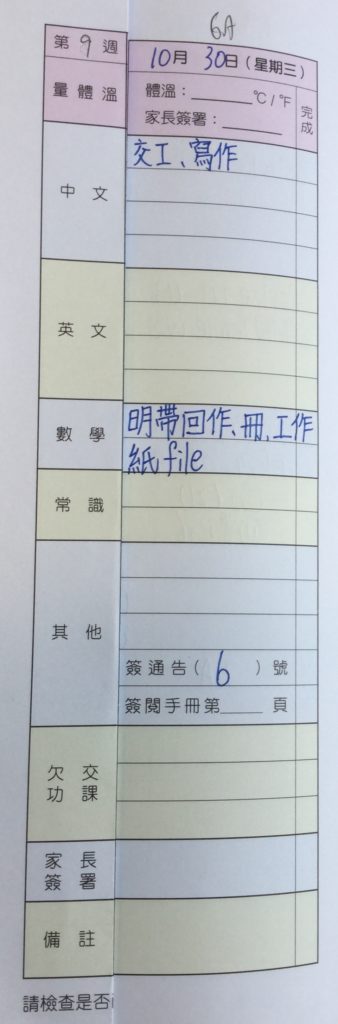 6A
第9週
10月30日(星期三)
量體溫
體溫：______°C/°F
家長簽署：______
完成
中文
交工、寫作
英文
數學
明帶回作、冊、工作
紙file
常識
其他
簽通告(6)號
簽閱手冊第____頁
欠交
功課
家長
簽署
備註
請檢查是否